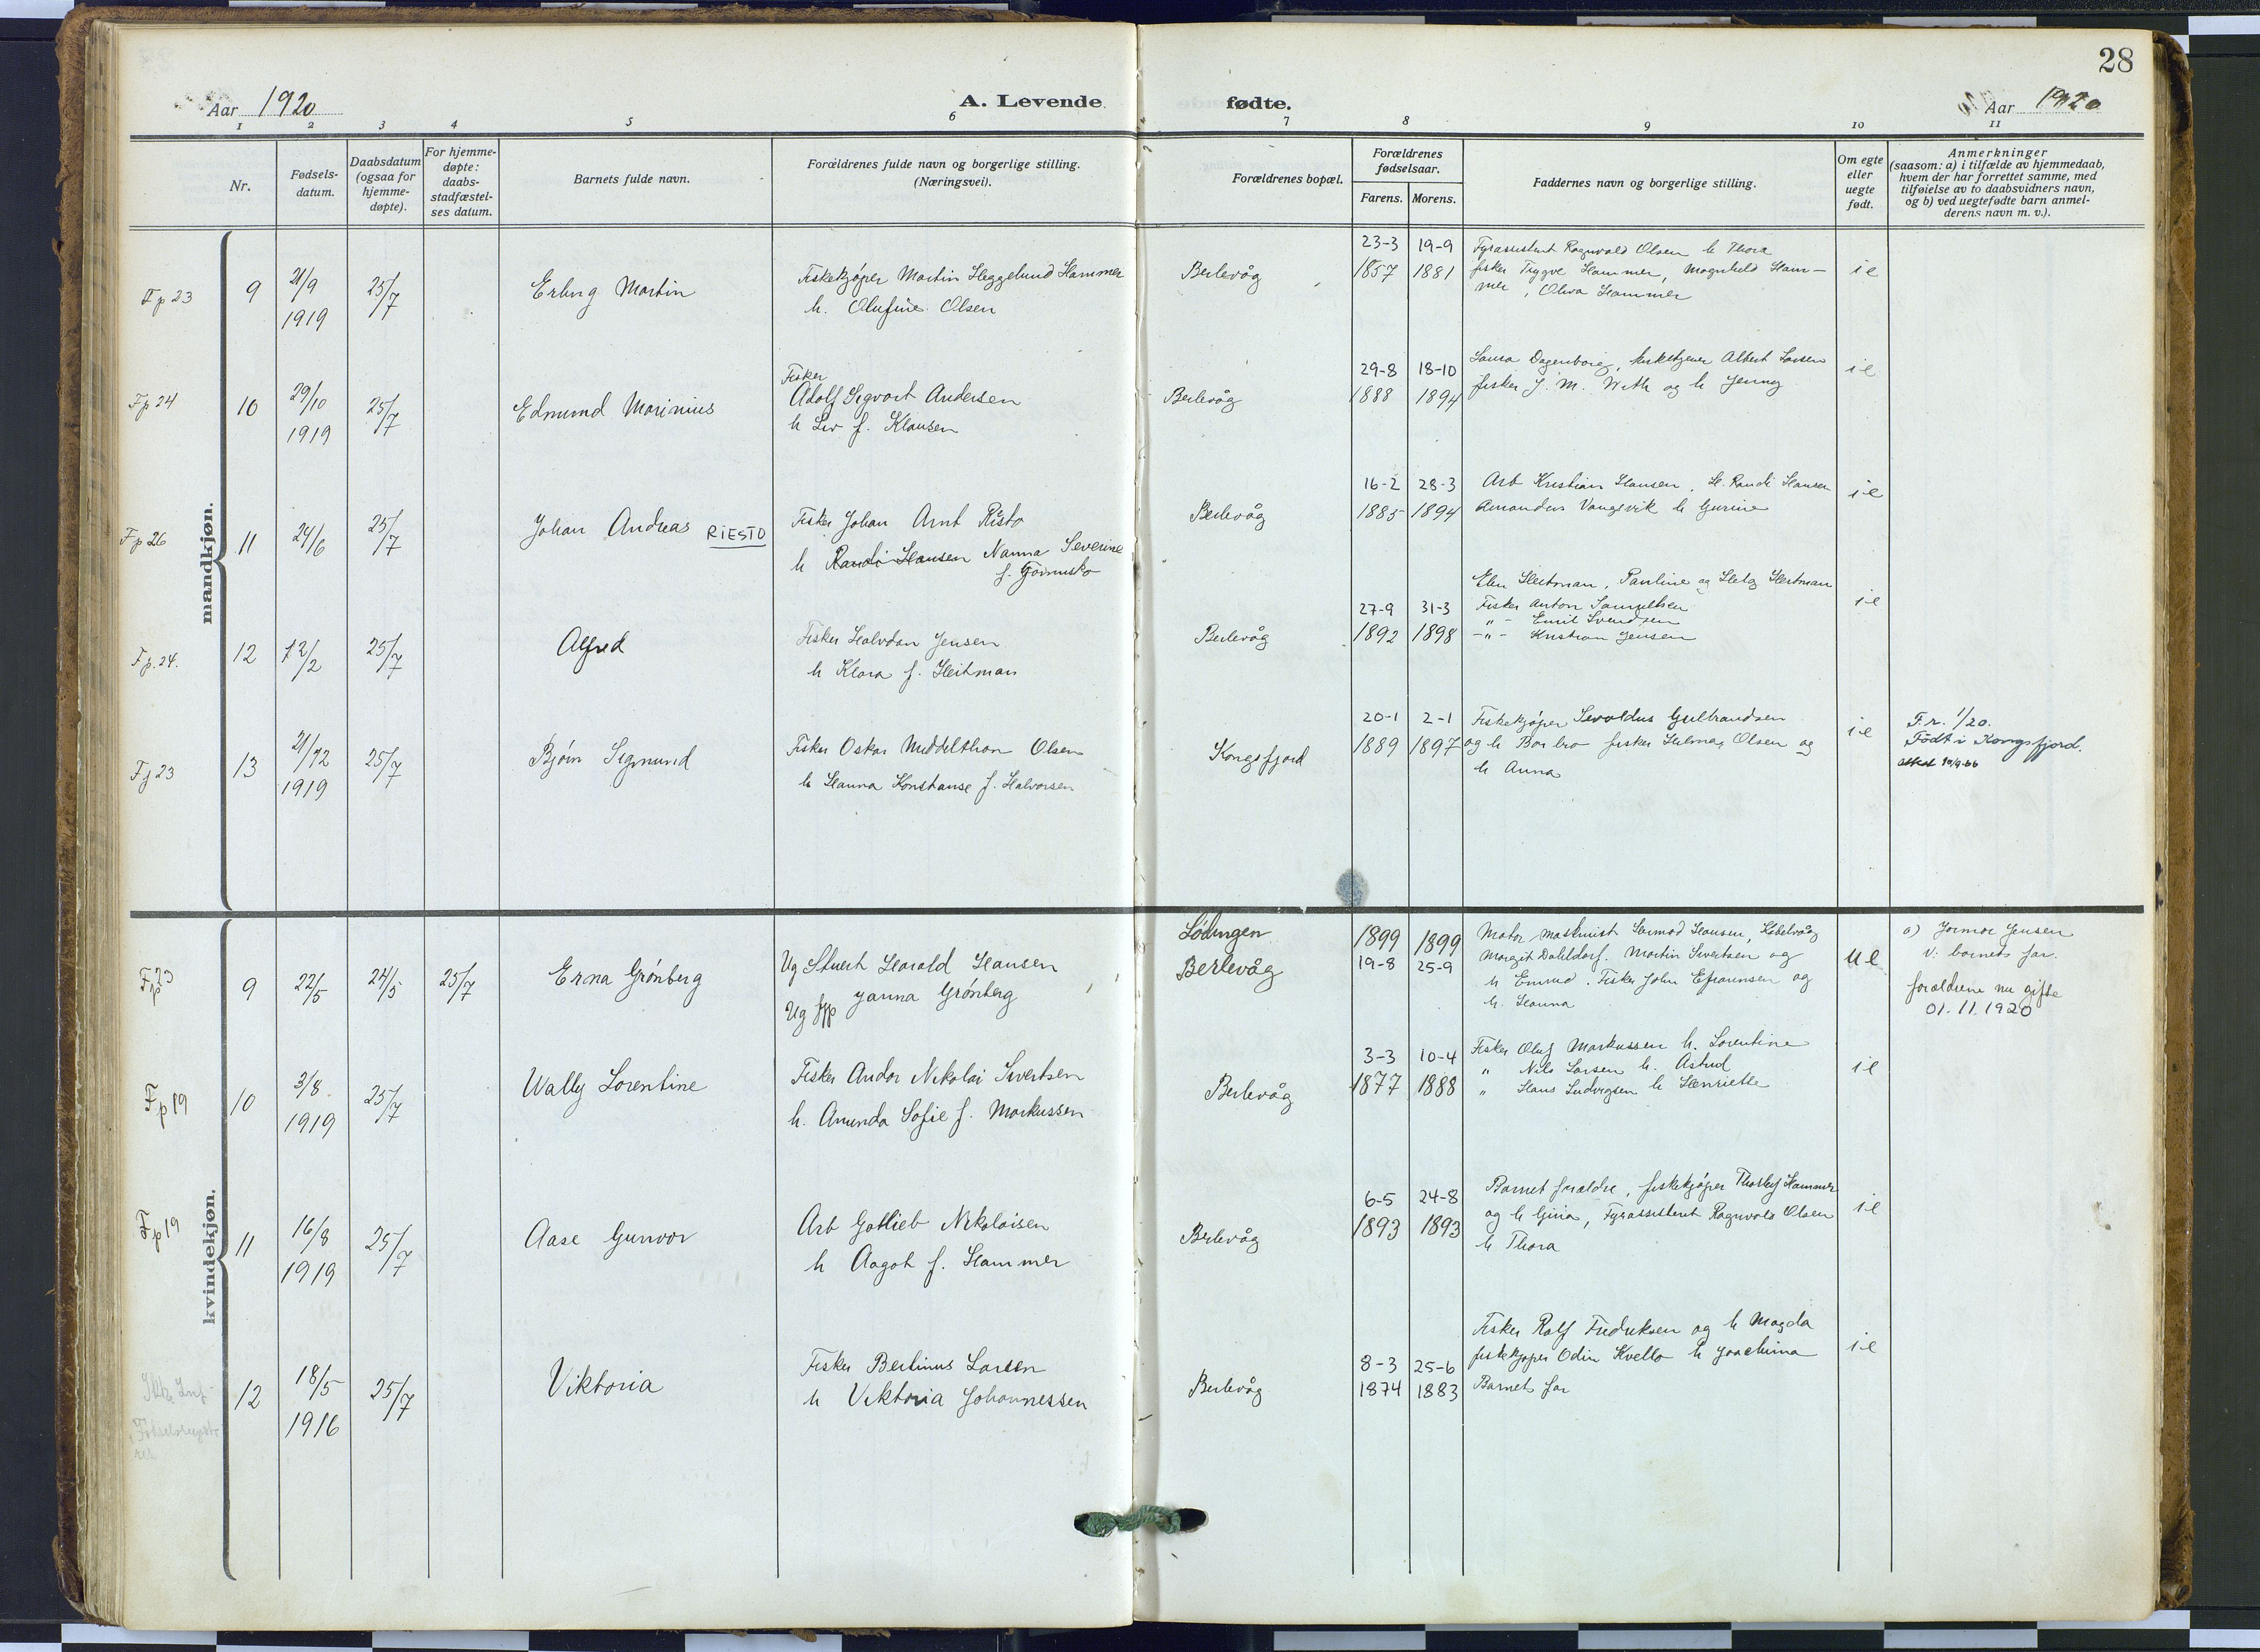 28
Aar 1920
A. Levende fødte.
Aar 1920
1 2 3 4 5 6 7 8 9 10 11
Nr.
Fødsels-
datum.
Daabsdatum
(ogsaa for
hjemme-
døpte).
For hjemme-
døpte:
daabs-
stadfæstel-
ses datum.
Barnets fulde navn.
Forældrenes fulde navn og borgerlige stilling.
(Næringsvei).
Forældrenes bopæl.
Forældrenes
fødselsaar.
Farens. Morens.
Faddernes navn og borgerlige stilling.
Om egte
eller
uegte
født.
Anmerkninger
(saasom: a) i tilfælde av hjemmedaab,
hvem der har forrettet samme, med
tilføielse av to daabsvidners navn,
og b) ved uegtefødte barn anmel-
derens navn m. v.).
mandkjøn.
Fp 23
9
21/9
1919
25/7
Erling Martin
Fiskekjøper Martin Heggelund Hammer
h. Olufine Olsen
Berlevåg
23-3 19-9
1857 1881
Fyrassistent Ragnvald Olsen h Thora
fisker Trygve Hammer, Magnhild Ham-
mer, Oliva Hammer
ie
Fp 24
10
29/10
1919
25/7
Edmund Marinius
Fisker
Adolf Sigvart Andersen
h Liv f. Klausen
Berlevåg
29-8 18-10
1888 1894
Laura Dagenborg, Albert Larsen
fisker J. M. With og h Jenny
ie
Fp 26
11
24/6
25/7
Johan Andreas RIESTO
Fisker Johan Arnt Risto
h Randi Hansen Nanna Severine
f.
Berlevåg
16-2 28-3
1885 1894
Arb Kristian Hansen, H. Randi Hansen
Amandus Vangsvik h Gurine
ie
Fp. 24.
12
12/2
25/7
Alfred
Fisker Halvdan Jensen
h Klara f. Heitman
Berlevåg
27-9 31-3
1892 1898
Elen Heitman, Pauline og Helg Heitman
Fisker Anton Samuelsen
" - Emil Svendsen
-"- Kristian Jensen
ie
Fj 23
13
21/12
1919
25/7
Bjørn Sigmund
Fisker Oskar Middelthon Olsen
h Hanna Konstanse f. Halvorsen
Kongsfjord
20-1 2-1
1889 1897
Fiskekjøper Sevaldus Gulbrandsen
og h Barbro fisker Hilmar Olsen og
h Anna
ie
F.r. 1/20.
Født i Kongsfjord.
attest 19/9-66
kvindekjøn.
Fp 23
9
22/5
24/5
25/7
Erna Grönberg
Ug Stuert Harald Hansen
Ug fhp Janna Grönberg
Lödingen
Berlevåg
1899 1899
19-8 25-9
Motor maskinist Hermod Hansen, Kabelvåg
Margit Dahldorf. Martin Sivertsen og
h Emma. Fisker John Efraimsen og
h. Hanna
ue
a) Jormor Jensen
v: barnets far.
forældrene nu gifte
01.11.1920
Fp 19
10
3/8
1919
25/7
Wally Lorentine
Fisker Andor Nikolai Sivertsen
h. Amanda Sofie f. Markussen
Berlevåg
3-3 10-4
1877 1888
Fisker Oluf Markussen h. Lorentine
" Nils Larsen h. Astrid
" Hans Ludvigsen h Henriette
ie
Fp 19
11
16/8
1919
25/7
Aase Gunvor
Arb Gotlieb Nikolaisen
h Aagot f. Hammer
Berlevåg
6-5 24-8
1893 1893
Barnet forældre, fiskekjøper Thorleif Hammer
og h Gina, Fyrassistent Ragnvald Olsen
h Thora
ie
12
18/5
1916
25/7
Viktoria
Fisker Bertinus Larsen
h Viktoria Johannessen
Berlevåg
8-3 25-6
1874 1883
Fisker Rolf Fredriksen og h Magda
fiskekjøper Odin Kvello h Joachima
Barnets far
ie